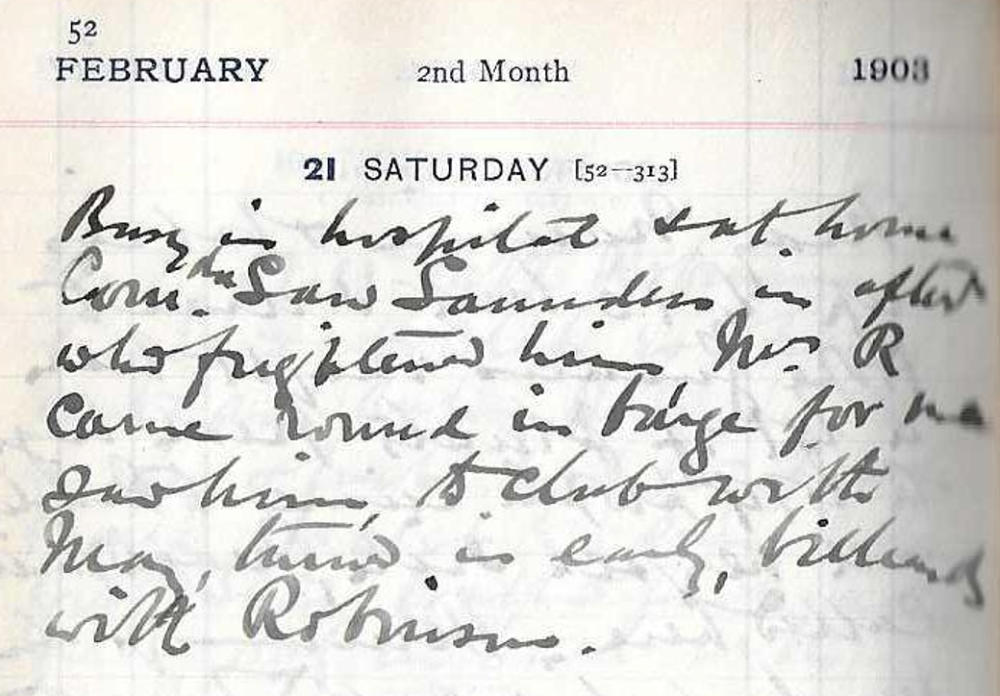 52
FEBRUARY 2nd Month 1903
21 SATURDAY [52—313]
Busy in hospital sat home
Com. Saw Saunders in after
who frightened him Mrs R
came round in barge for me
saw him, to club with
May, turned in early, billiards
with Robinson.